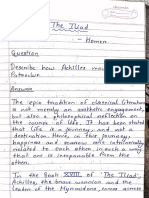 The Iliad
- Homer
Question
Describe how Achilles
Patroclus.
Answer
The epic tradition of classical literature
is not merely an aesthetic engagement,
but also a philosophical reflection on
the course of life. It has been stated
that life is a journey, and not a
destination. Hence, in this journey,
happiness and sorrow are intricately
related to each other in such a way
that one is inseparable from the
other.
In the Book XVIII of 'The Iliad',
Achilles, the brave warrior and the
leader of the Myrmidons, comes across